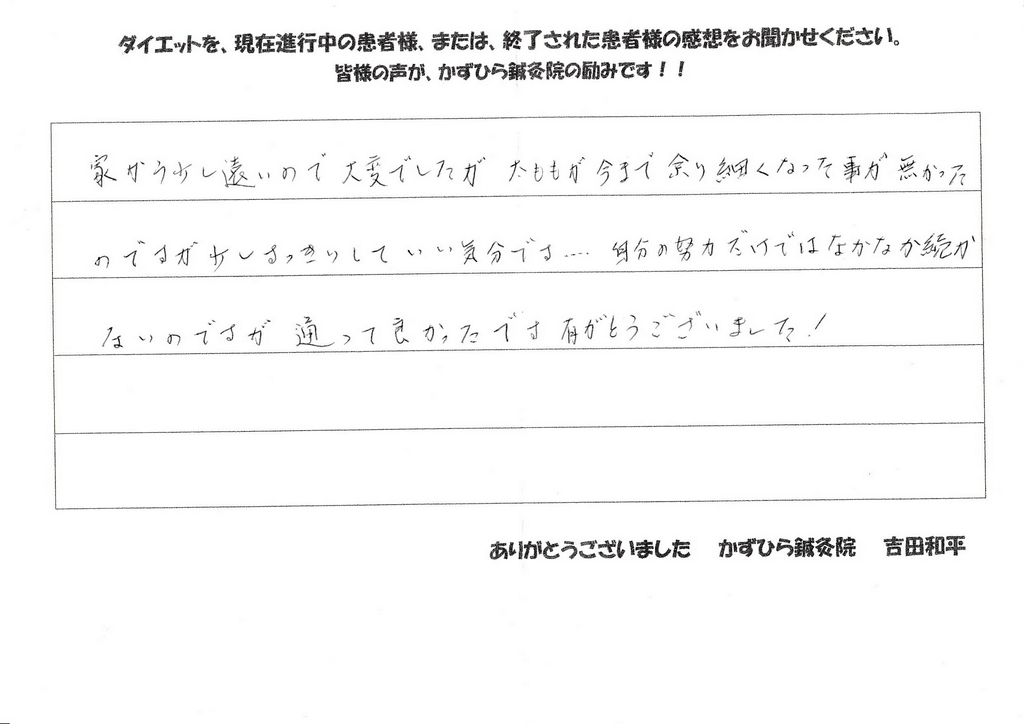 ダイエットを、現在進行中の患者様、または、終了された患者様の感想をお聞かせください。
皆様の声が、かずひら鍼灸院の励みです！！
家から少し遠いので大変でしたが 太ももが今まで余り細くなった事が無かった
のですが少しすっきりしていい気分です.... 自分の努力だけではなかなか続か
ないのですが 通って良かったです 有がとうございました!
ありがとうございました かずひら鍼灸院 吉田和平